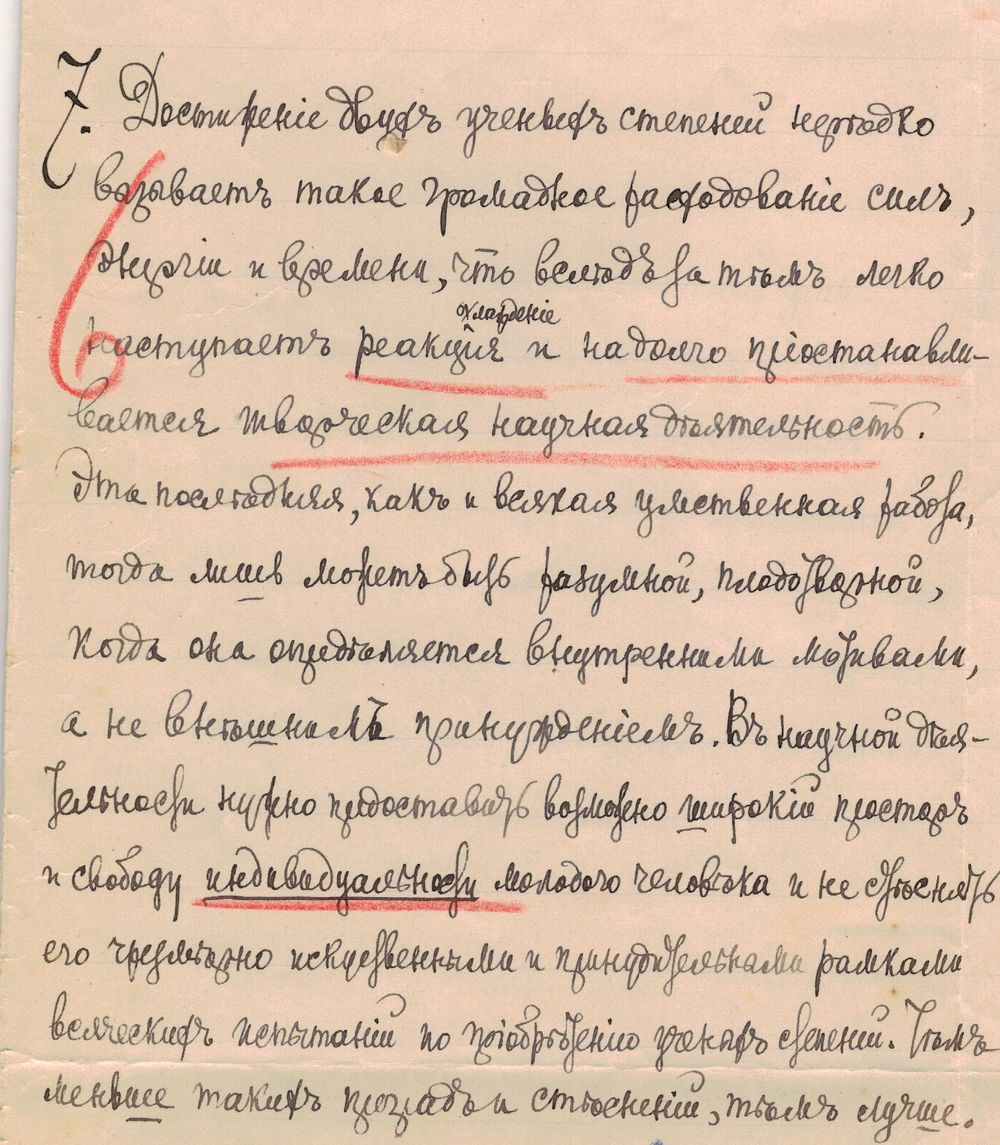 7. Достиженіе двухъ ученыхъ степеней нерѣдко
вызываетъ такое громадное расходованіе силъ,
энергіи и времени, что вслѣдъ за тѣмъ легко
охлажденіе
наступаетъ реакція и надолго пріостанавли-
вается творческая научная дѣятельность.
Эта послѣдняя, какъ и всякая умственная работа,
тогда лишь можетъ быть разумной, плодотворной,
когда она опредѣляется внутренними мотивами,
а не внѣшнимъ принужденіемъ. Въ научной дѣя-
тельности нужно предоставить возможно широкій просторъ
и свободу индивидуальности молодого человѣка и не стѣснять
его чрезмѣрно искуственными и принудительными рамками
всяческихъ испытаній по пріобрѣтенію ученыхъ степеней. Чѣмъ
меньше такихъ преградъ и стѣсненій, тѣмъ лучше.